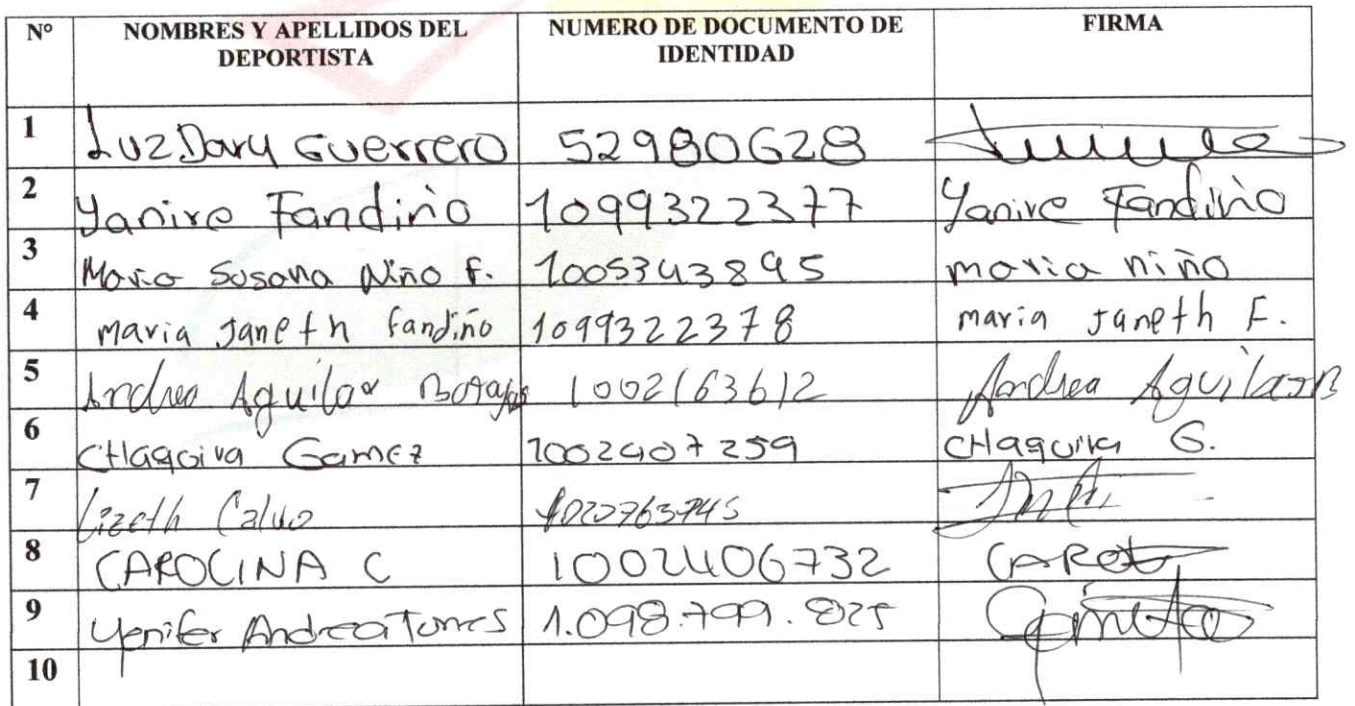 Nº NOMBRES Y APELLIDOS DEL DEPORTISTA NUMERO DE DOCUMENTO DE IDENTIDAD FIRMA
1 Luz Dary Guerrero 52980628
2 Yanire Fandiño 1099322377 Yanire Fandiño
3 Maria Susana Niño F. 1005343895 maria niño
4 maria Janeth fandiño 1099322378 maria Janeth F.
5 Andrea Aguilar 1002163612 Andrea Aguilar B
6 CHaquiva Gamez 1002407259 CHaquiva G.
7 Lizeth Calvo 1020763745
8 CAROLINA C 1002406732 CARO
9 Yenifer Andrea Torres 1.098.799.825
10